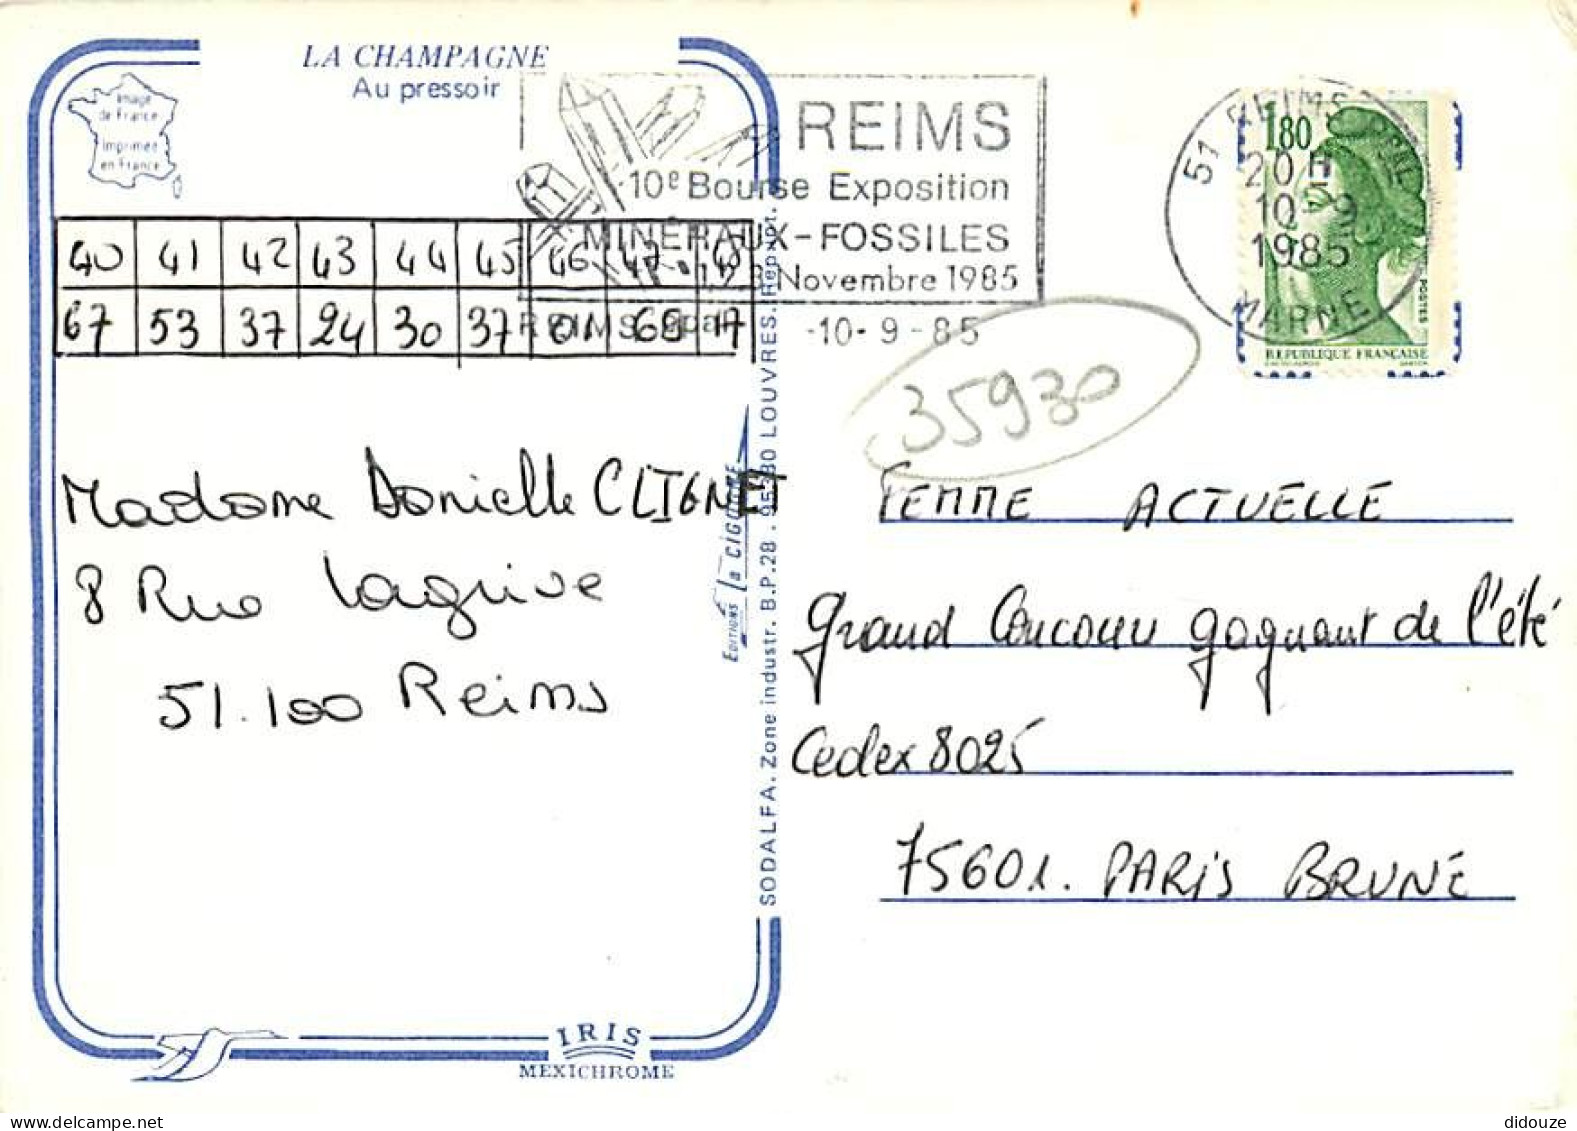 LA CHAMPAGNE
Au pressoir
Image
de France
Imprimée
en France
REIMS
10e Bourse Exposition
MINERAUX-FOSSILES
1,2,3 Novembre 1985
REIMS
-10-9-85
51 REIMS
20H
10-9
1985
MARNE
1,80
POSTES
REPUBLIQUE FRANÇAISE
40 41 42 43 44 45 46 47 48
67 53 37 24 30 37 01 65 17
35930
Madame Danielle CLIGNET
8 Rue Lagrive
51.100 Reims
Editions La CIGOGNE
SODALFA. Zone industr. B.P.28 - 95380 LOUVRES. Reprod.
FEMME ACTUELLE
Grand Concours gagnant de l'été
Cedex 8025
75601. PARIS BRUNE
IRIS
MEXICHROME
didouze